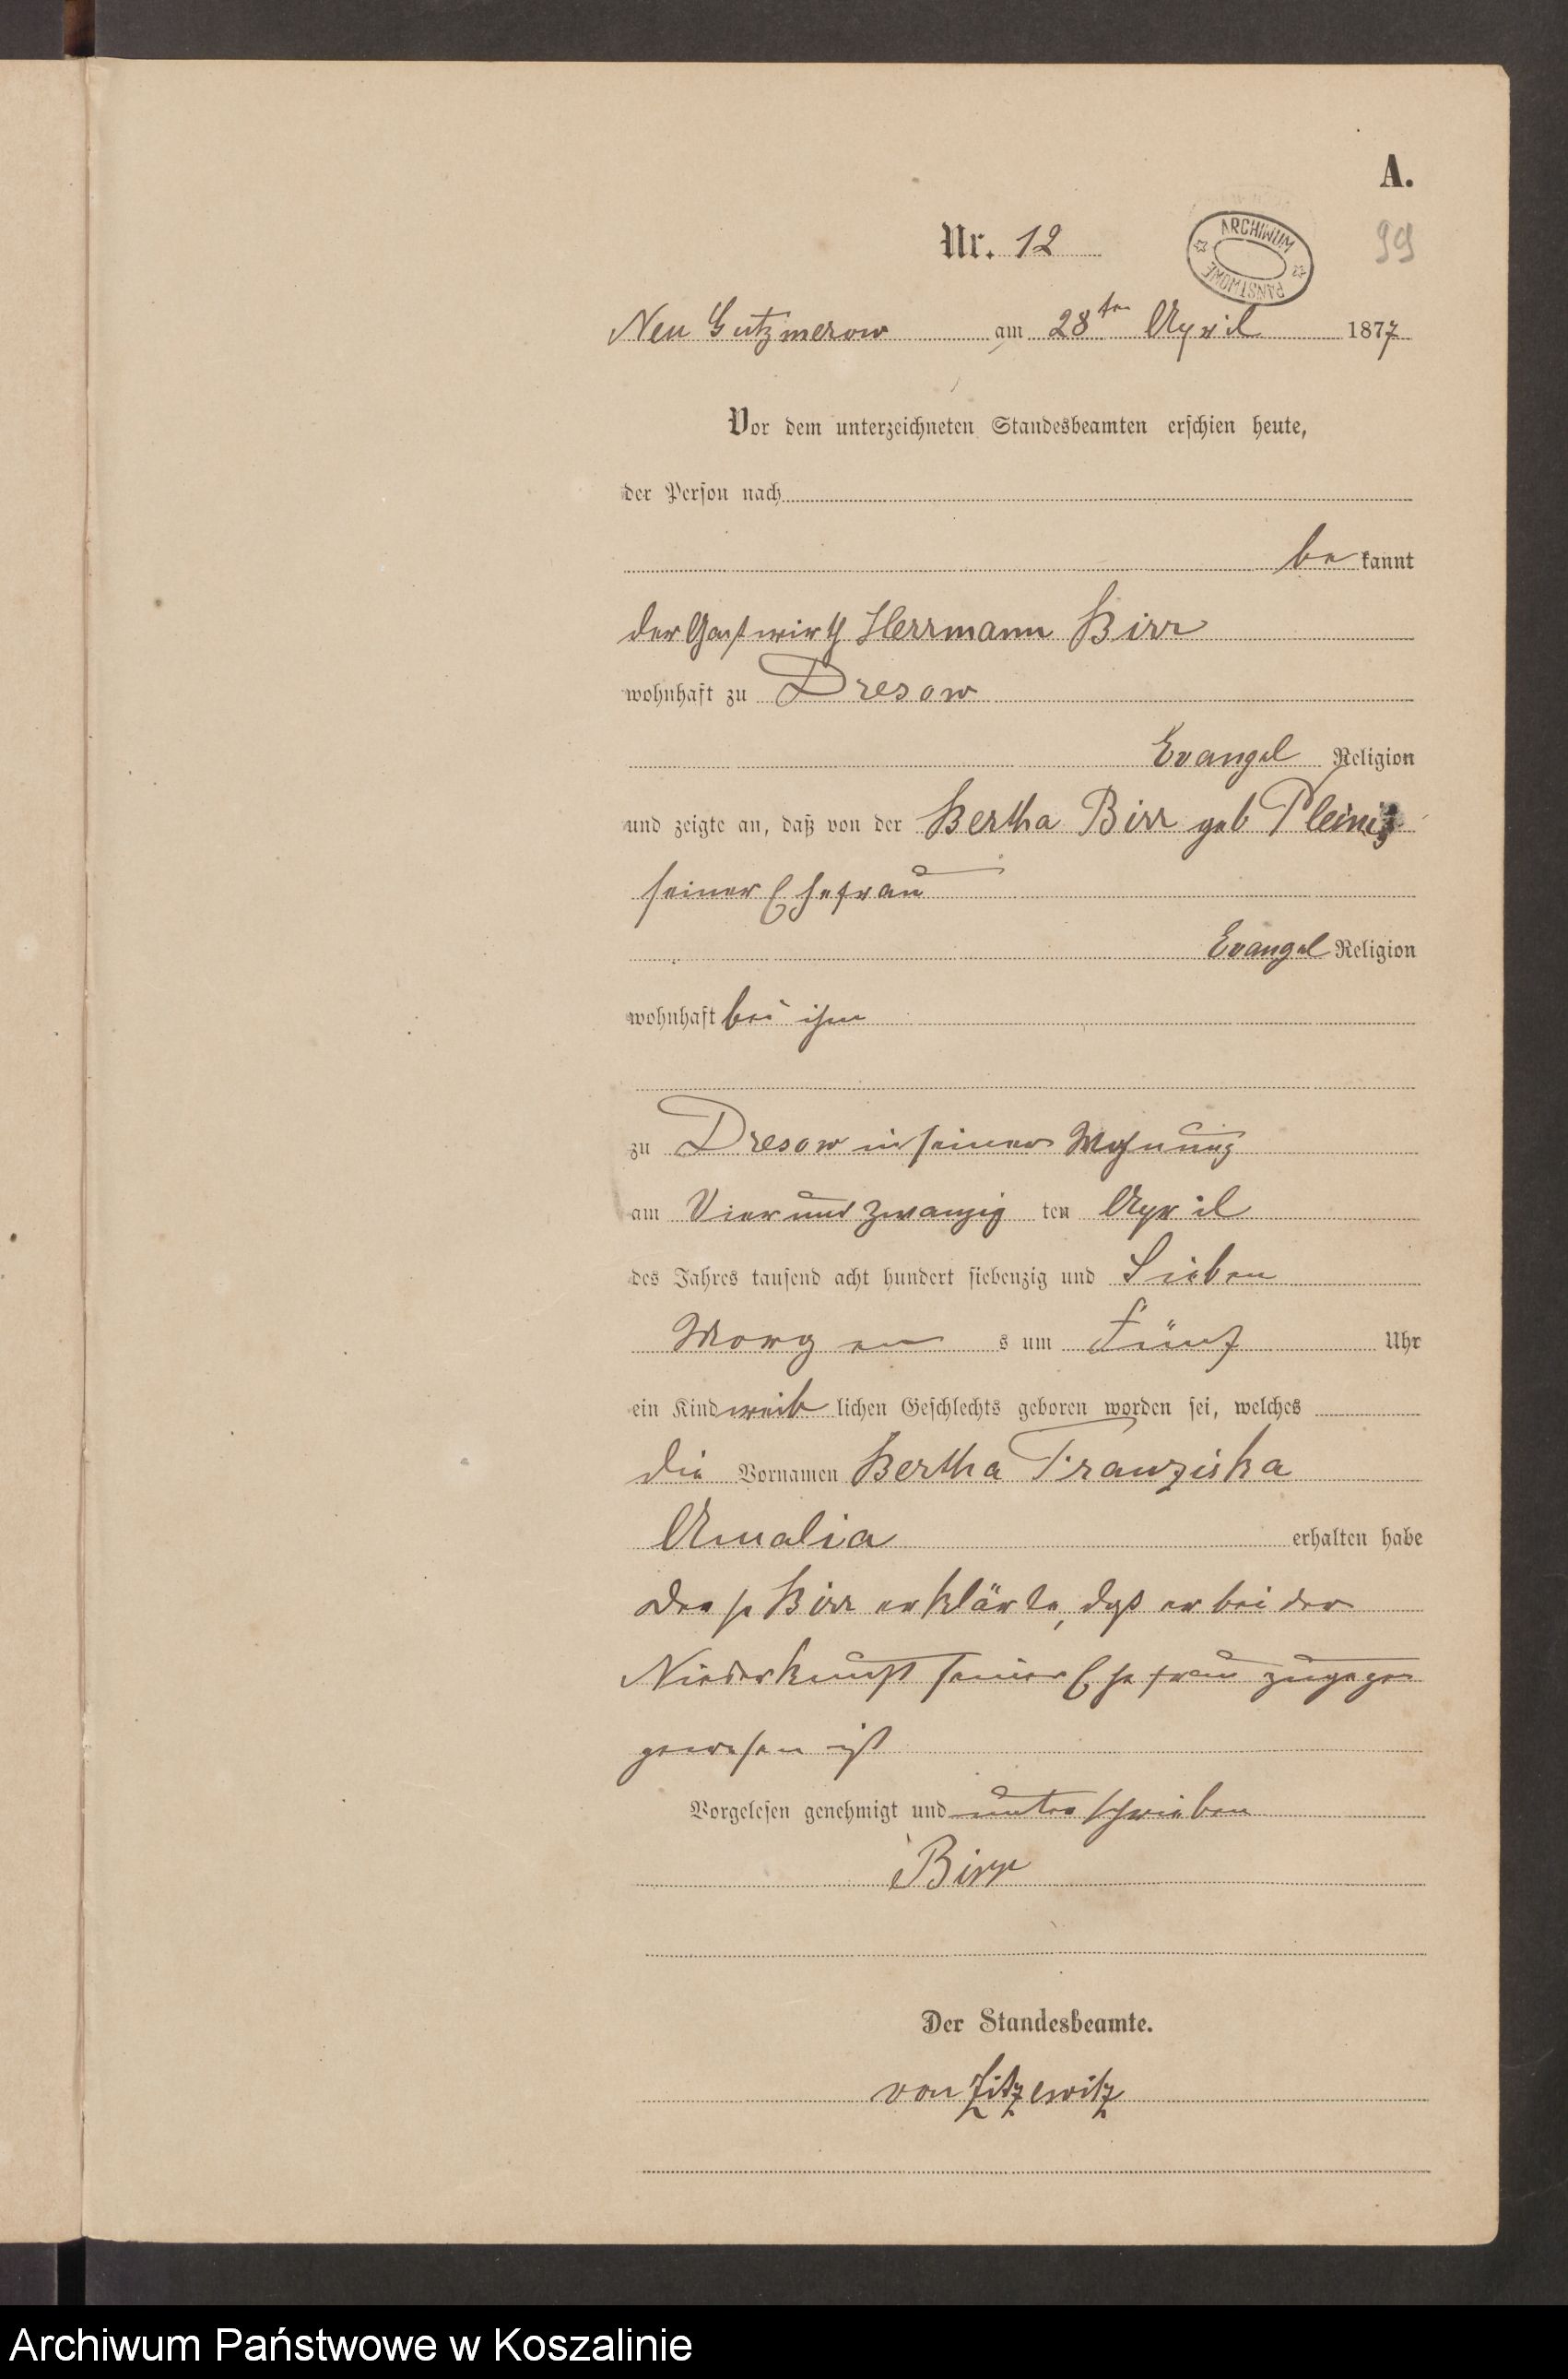 A.
Nr. 12
ARCHIWUM PAŃSTWOWE
99
Neu Gutzmerow am 28ten April 1877
Vor dem unterzeichneten Standesbeamten erschien heute,
der Person nach
be kannt
der Gastwirth Herrmann Birr
wohnhaft zu Dresow
Evangel Religion
und zeigte an, daß von der Bertha Birr geb
seiner Ehefrau
Evangel Religion
wohnhaft bei ihm
zu Dresow in seiner Wohnung
am Vier und zwanzig ten April
des Jahres tausend acht hundert siebenzig und Sieben
Morgen s um Fünf Uhr
ein Kind weib lichen Geschlechts geboren worden sei, welches
die Vornamen Bertha Franziska
Amalia erhalten habe
Birr erklärte, daß er bei der
Niederkunft seiner Ehefrau zugegen
gewesen ist
Vorgelesen genehmigt und unterschrieben
Birr
Der Standesbeamte.
von Zitzewitz
Archiwum Państwowe w Koszalinie